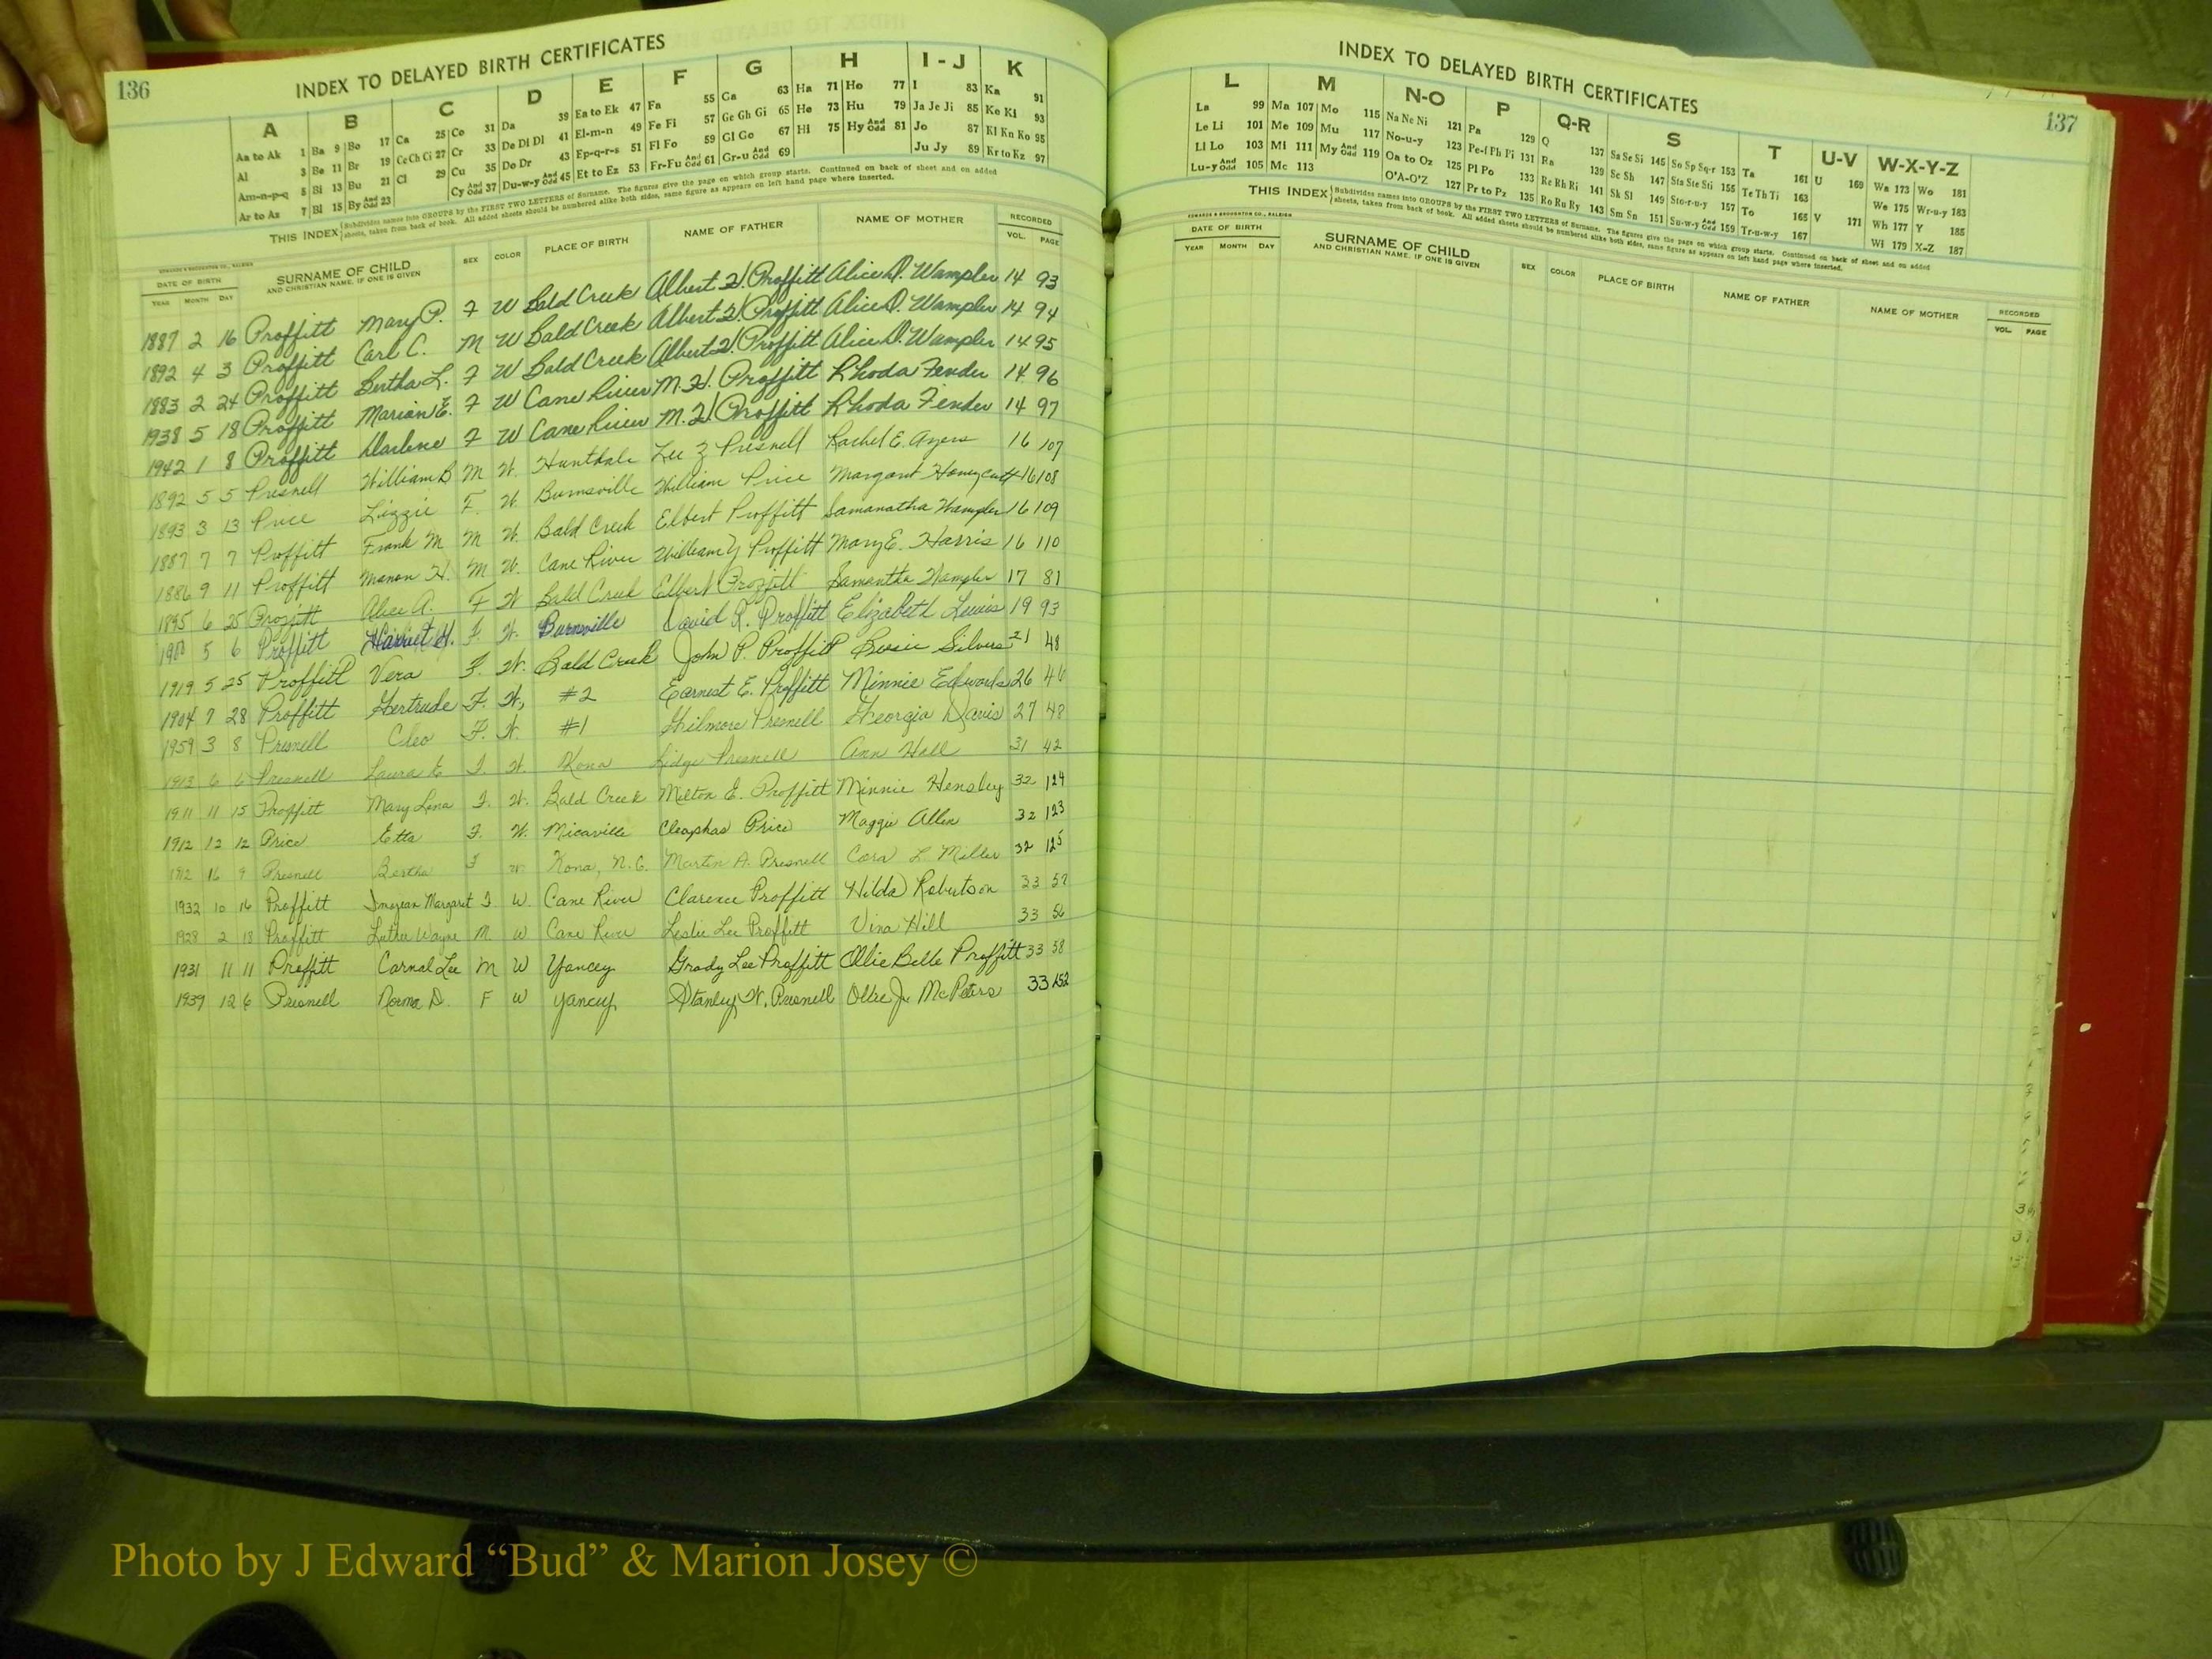 136
INDEX TO DELAYED BIRTH CERTIFICATES
A B C D E F G H I - J K
Aa to Ak 1 Ba 9 Bo 17 Ca 25 Co 31 Da 39 Ea to Ek 47 Fa 55 Ga 63 Ha 71 Ho 77 I 83 Ka 91
Al 3 Be 11 Br 19 Ce Ch Ci 27 Cr 33 De Di Dl 41 El-m-n 49 Fe Fi 57 Ge Gh Gi 65 He 73 Hu 79 Ja Je Ji 85 Ke Ki 93
Am-n-p-q 5 Bi 13 Bu 21 Cl 29 Cu 35 Do Dr 43 Ep-q-r-s 51 Fl Fo 59 Gl Go 67 Hi 75 Hy And Odd 81 Jo 87 Kl Kn Ko 95
Ar to Az 7 Bl 15 By And Odd 23 Cy And Odd 37 Du-w-y And Odd 45 Et to Ez 53 Fr-Fu And Odd 61 Gr-u And Odd 69 Ju Jy 89 Kr to Kz 97
THIS INDEX Subdivides names into GROUPS by the FIRST TWO LETTERS of Surname. The figures give the page on which group starts. Continued on back of sheet and on added
sheets, taken from back of book. All added sheets should be numbered alike both sides, same figure as appears on left hand page where inserted.
EDWARDS & BROUGHTON CO., RALEIGH
DATE OF BIRTH SURNAME OF CHILD AND CHRISTIAN NAME, IF ONE IS GIVEN SEX COLOR PLACE OF BIRTH NAME OF FATHER NAME OF MOTHER RECORDED
YEAR MONTH DAY VOL. PAGE
1887 2 16 Proffitt Mary P. F W Bald Creek Albert H. Proffitt Alice D. Wampler 14 93
1892 4 3 Proffitt Carl C. M W Bald Creek Albert H. Proffitt Alice D. Wampler 14 94
1883 2 24 Proffitt Bertha L. F W Bald Creek Albert H. Proffitt Alice D. Wampler 14 95
1938 5 18 Proffitt Marion E. F W Cane River M. H. Proffitt Rhoda Fender 14 96
1942 1 8 Proffitt Darlene F W Cane River M. H. Proffitt Rhoda Fender 14 97
1892 5 5 Presnell William B M W. Huntdale Lee Z Presnell Rachel E. Ayers 16 107
1893 3 13 Price Lizzie F. W Burnsville William Price Margant Honeycutt 16 108
1887 7 7 Proffitt Frank M M W. Bald Creek Elbert Proffitt Samanatha Wampler 16 109
1886 9 11 Proffitt Manon H. M W. Cane River William Y Proffitt Mary E. Harris 16 110
1895 6 25 Proffitt Alice A. F W Bald Creek Elbert Proffitt Samantha Wampler 17 81
5 6 Proffitt Harriet H. F. W. Burnsville David R. Proffitt Elizabeth Lewis 19 93
1919 5 25 Proffitt Vera F. W. Bald Creek John P. Proffitt Silvers 21 48
1904 7 28 Proffitt Gertrude F. W. #2 Earnest E. Proffitt Minnie Edwards 26 46
1959 3 8 Presnell Cleo F. W. #1 Gilmore Presnell Georgia Davis 27 48
1913 6 6 Presnell Laura E F. W. Kona Lidge Presnell Ann Hall 31 42
1911 11 15 Proffitt Mary Lena F. W. Bald Creek Milton E. Proffitt Minnie Hensley 32 124
1912 12 12 Price Etta F. W. Micaville Cleophas Price Maggie Allen 32 123
1912 16 9 Presnell Bertha F W Kona, N.C. Martin A. Presnell Cora L Miller 32 125
1932 10 16 Proffitt Imogean Margaret F. W. Cane River Clarence Proffitt Hilda Robertson 33 57
1928 2 18 Proffitt Luther Wayne M. W Cane River Leslie Lee Proffitt Vina Hill 33 56
1931 11 11 Proffitt Carnal Lee M W Yancey Grady Lee Proffitt Ollie Belle Proffitt 33 58
1939 12 6 Presnell Norma D. F W Yancey Stanley W. Presnell Ollie J. McPeters 33 152
137
INDEX TO DELAYED BIRTH CERTIFICATES
L M N-O P Q-R S T U-V W-X-Y-Z
La 99 Ma 107 Mo 115 Na Ne Ni 121 Pa 129 Q 137 Sa Se Si 145 So Sp Sq-r 153 Ta 161 U 169 Wa 173 Wo 181
Le Li 101 Me 109 Mu 117 No-u-y 123 Pe-f Ph Pi 131 Ra 139 Sc Sh 147 Sta Ste Sti 155 Te Th Ti 163 We 175 Wr-u-y 183
Ll Lo 103 Mi 111 My And Odd 119 Oa to Oz 125 Pl Po 133 Re Rh Ri 141 Sk Sl 149 Sto-r-u-y 157 To 165 V 171 Wh 177 Y 185
Lu-y And Odd 105 Mc 113 O'A-O'Z 127 Pr to Pz 135 Ro Ru Ry 143 Sm Sn 151 Su-w-y And Odd 159 Tr-u-w-y 167 Wi 179 X-Z 187
THIS INDEX Subdivides names into GROUPS by the FIRST TWO LETTERS of Surname. The figures give the page on which group starts. Continued on back of sheet and on added
sheets, taken from back of book. All added sheets should be numbered alike both sides, same figure as appears on left hand page where inserted.
EDWARDS & BROUGHTON CO., RALEIGH
DATE OF BIRTH SURNAME OF CHILD AND CHRISTIAN NAME, IF ONE IS GIVEN SEX COLOR PLACE OF BIRTH NAME OF FATHER NAME OF MOTHER RECORDED
YEAR MONTH DAY VOL. PAGE
Photo by J Edward “Bud” & Marion Josey ©